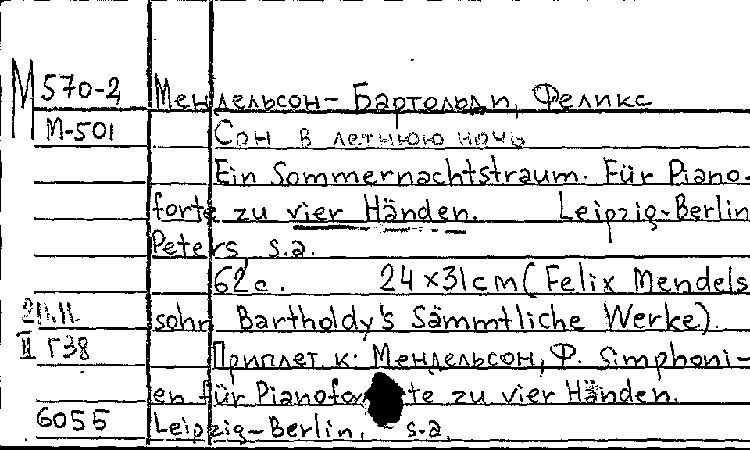 М 570-2 Мендельсон-Бартольди, Феликс
М-501 Сон в летнюю ночь
Ein Sommernachtstraum. Für Piano-
forte zu vier Händen. Leipzig-Berlin
Peters, s.a.
62с. 24×31cm (Felix Mendels
sohn Bartholdy's Sämmtliche Werke).
II Г38 Приплет к: Мендельсон, Ф. Simphoni-
en für Pianoforte zu vier Händen.
6055 Leipzig-Berlin, s.a.